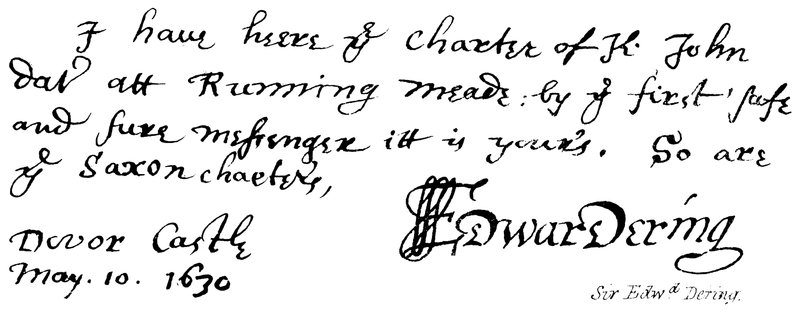 I haue heere yͤ charter of K. John
dať att Running Meade: by yͤ first safe
and sure messenger itt is your's. So are
yͤ Saxon charters,
Dovor Castle
May. 10. 1630
EdwarDering
Sir Edwᵈ Dering.